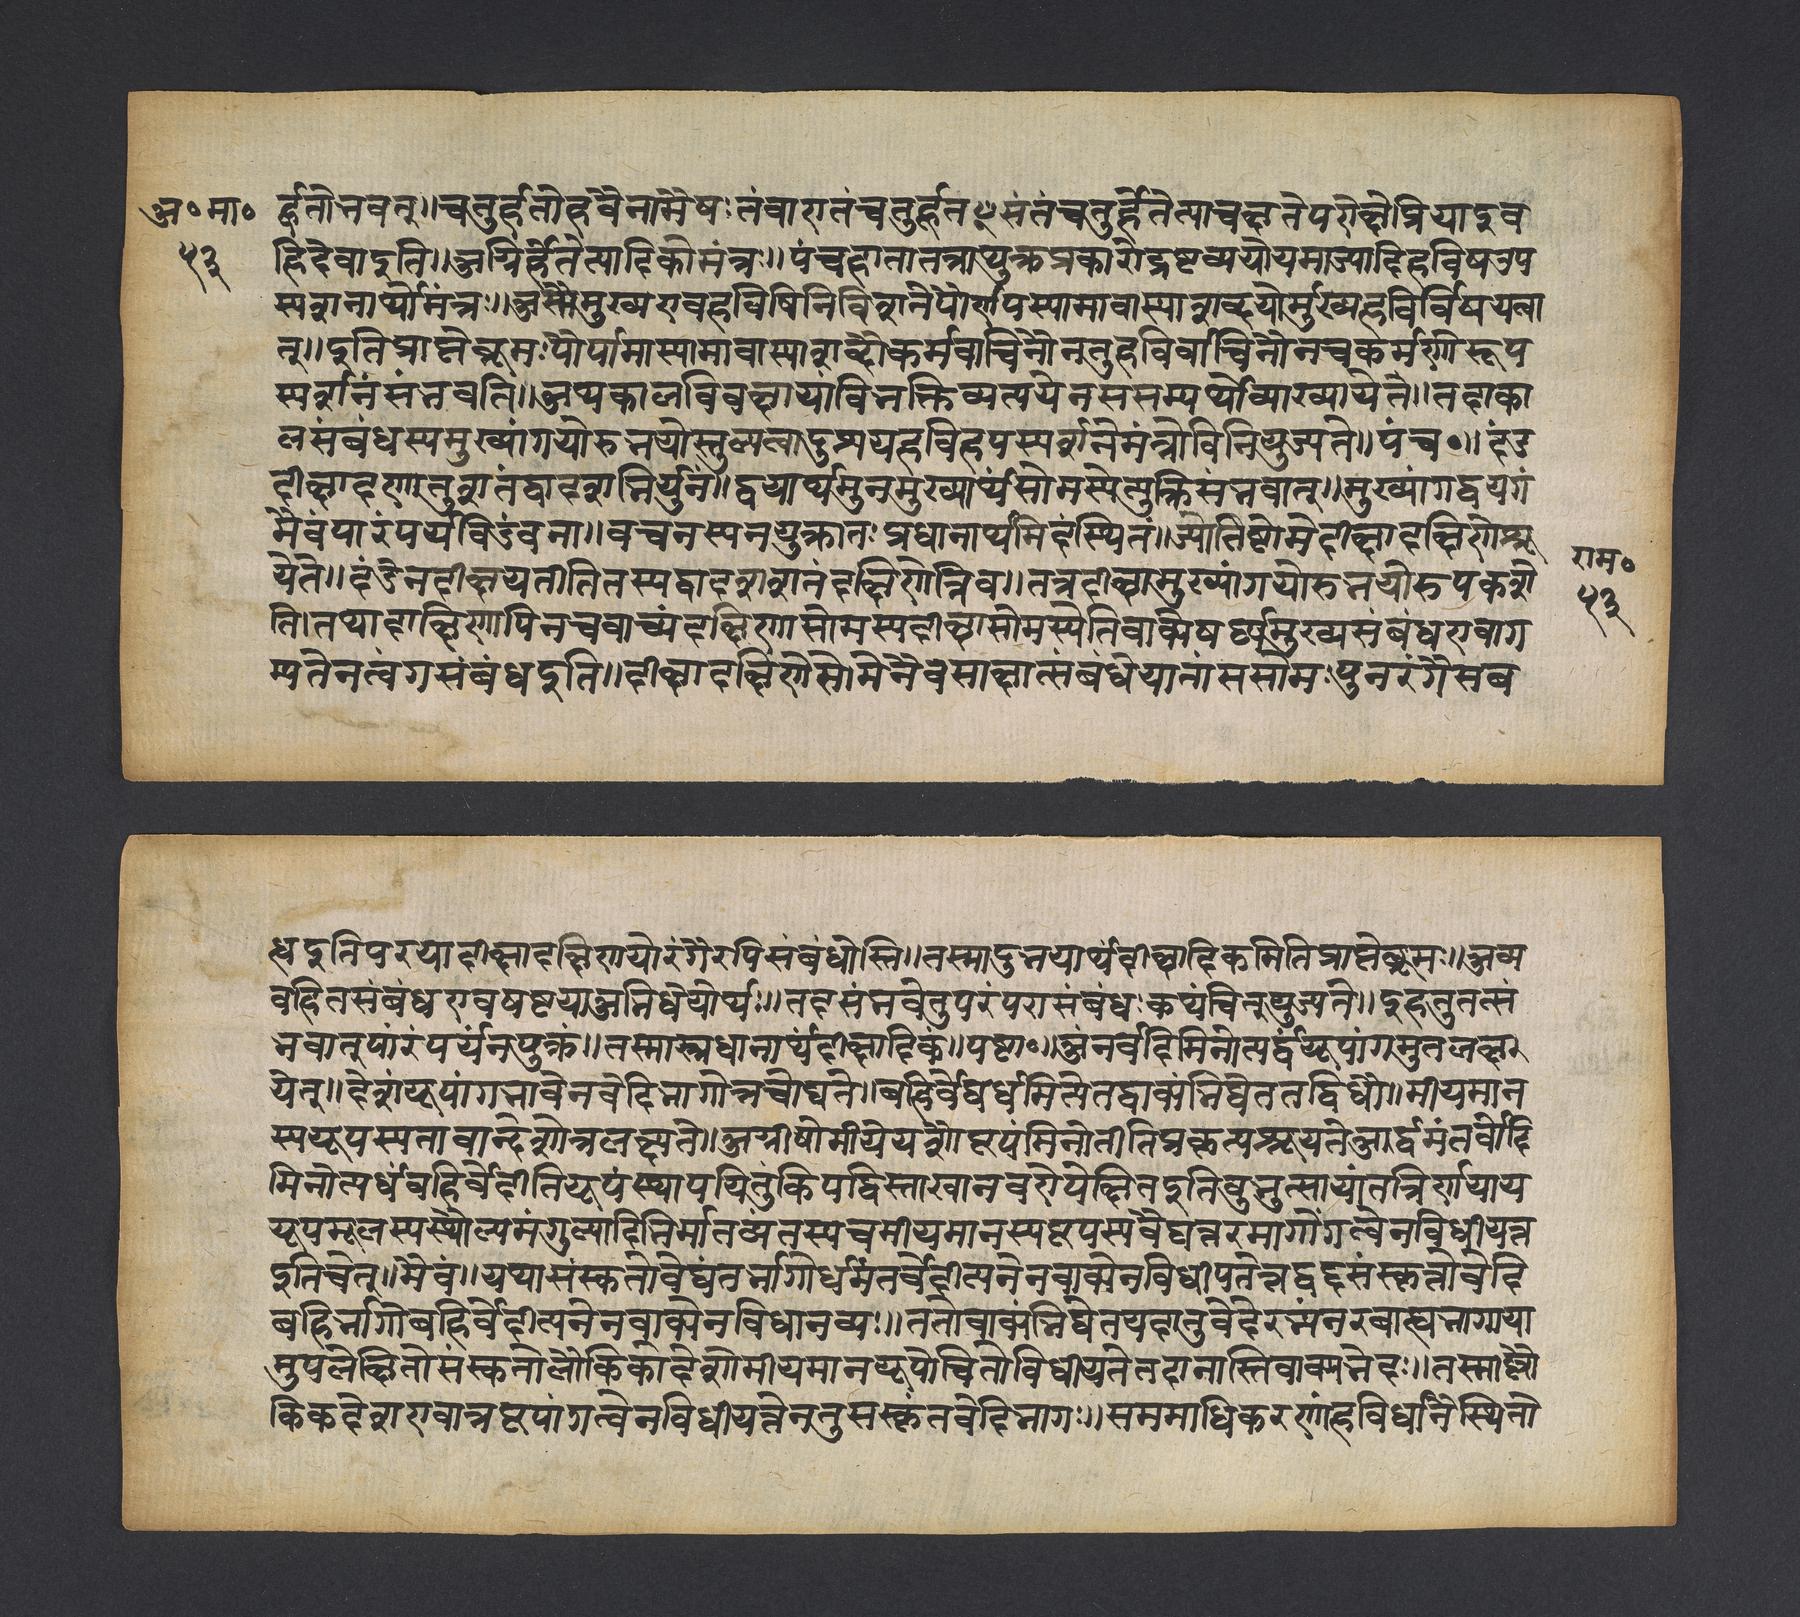 अ॰ मा॰
५३
र्हूतोभवत्॥चतुर्हूतोहवैनामैषःतंवाएतंचतुर्हूतꣳसंतंचतुर्होतेत्याचक्षतेपरोक्षेणप्रियाइव
हिदेवाइति॥अग्निर्होतेत्यादिकोमंत्रः॥पंचहोतातत्राप्युक्तप्रकारोद्रष्टव्ययोयमाज्यादिहविषउप
स्पर्शनार्थोमंत्रः॥असौमुख्यएवहविषिनिविशतेपौर्णमास्यामावास्याशब्दयोर्मुख्यहविर्विषयत्वा
त्॥इतिप्राप्तेब्रूमःपौर्णमास्यामावास्याशब्दौकर्मवाचिनौनतुहविर्वाचिनौनचकर्मणोरूप
स्पर्शनंसंभवति॥अथकालविवक्षायाविभक्तिव्यत्ययेनससम्यर्थोव्याख्यायेत॥तदाका
लसंबंधस्यमुख्यांगयोरुभयोस्तुल्यत्वादुभयहविरुपस्पर्शनेमंत्रोविनियुज्यते॥पंच॰॥दंड
दीक्षादक्षिणातुशतंद्वादशाभिर्युतं॥द्वयार्थमुतमुख्यार्थंसोमस्येत्युक्तिसंभवात्॥मुख्यांगद्वयगं
मैवंपारंपर्यविडंबना॥वचनस्यनयुक्तातःप्रधानार्थमिदंस्थितं॥ज्योतिष्टोमेदीक्षादक्षिणेश्रू
येते॥दंडेनदीक्षयतीतितस्यद्वादशशतंदक्षिणेतिच॥तत्रदीक्षामुख्यांगयोरुभयोरुपकरो
ति।तथादक्षिणापिनचवाच्यंदक्षिणासोमस्यदीक्षासोमस्येतिवाक्येषष्ठ्यामुख्यसंबंधएवाग
म्यतेनत्वंगसंबंधइति॥दीक्षादक्षिणेसोमेनैवसाक्षात्संबंधेयातांससोमःपुनरंगैःसंब
राम॰
५३
ध्यइतिपरंपरयादीक्षादक्षिणयोरंगैरपिसंबंधोस्ति॥तस्मादुभयार्थंदीक्षादिकमितिप्राप्तेब्रूमः॥अव्य
वहितसंबंधएवषष्ठ्याअभिधेयोर्थः॥तदसंभवेतुपरंपरासंबंधःकथंचिद्युज्यते॥इहतुतत्सं
भवात्पारंपर्यंनयुक्तं॥तस्मात्प्रधानार्थंदीक्षादिकं॥षष्ठा॰॥अंतर्वेदिमिनोत्यर्द्धंयूपांगमुतलक्षण
येत्॥देशंयूपांगभावेनवेदिभागोत्रचोद्यते॥बहिर्वेद्यर्धमित्येतद्वाक्यंभिद्येततद्विधौ॥मीयमान
स्ययूपस्यतावान्देशोत्रलक्ष्यते॥अग्नीषोमीयेयशौयूपंमिनोतीतिप्रकृत्यश्रूयतेआर्द्धमंतर्वेदि
मिनोत्यर्धंबहिर्वेदीतियूपंस्थापयितुंकियद्विस्तारवानवटोपेक्षितइतिबुभुत्सायांतन्निर्णयाय
यूपमूलस्यस्थौल्यमंगुल्यादिनिर्मातव्यंतस्यचमीयमानस्ययूपस्यवेद्यंतरभागोंगत्वेनविधीयत
इतिचेत्॥मैवं॥यथासंस्कृतोवेद्यंतर्भागोर्धमंतर्वेदीत्यनेनवाक्येनविधीयतेतद्वदसंस्कृतोवेदि
बहिर्भागोबहिर्वेदीत्यनेनवाक्येनविधातव्यः॥ततोवाक्यंभिद्येतयदातुवेदेरभ्यंतरबाह्यभागाभ्या
मुपलक्षितोसंस्कृतोलौकिकोदेशोमीयमानयूपोचितोविधीयतेतदानास्तिवाक्यभेदः॥तस्माल्लौ
किकदेशएवात्रयूपांगत्वेनविधीयतेनतुसंस्कृतवेदिभागः॥सप्तमाधिकरणंहविर्धानेस्थितो